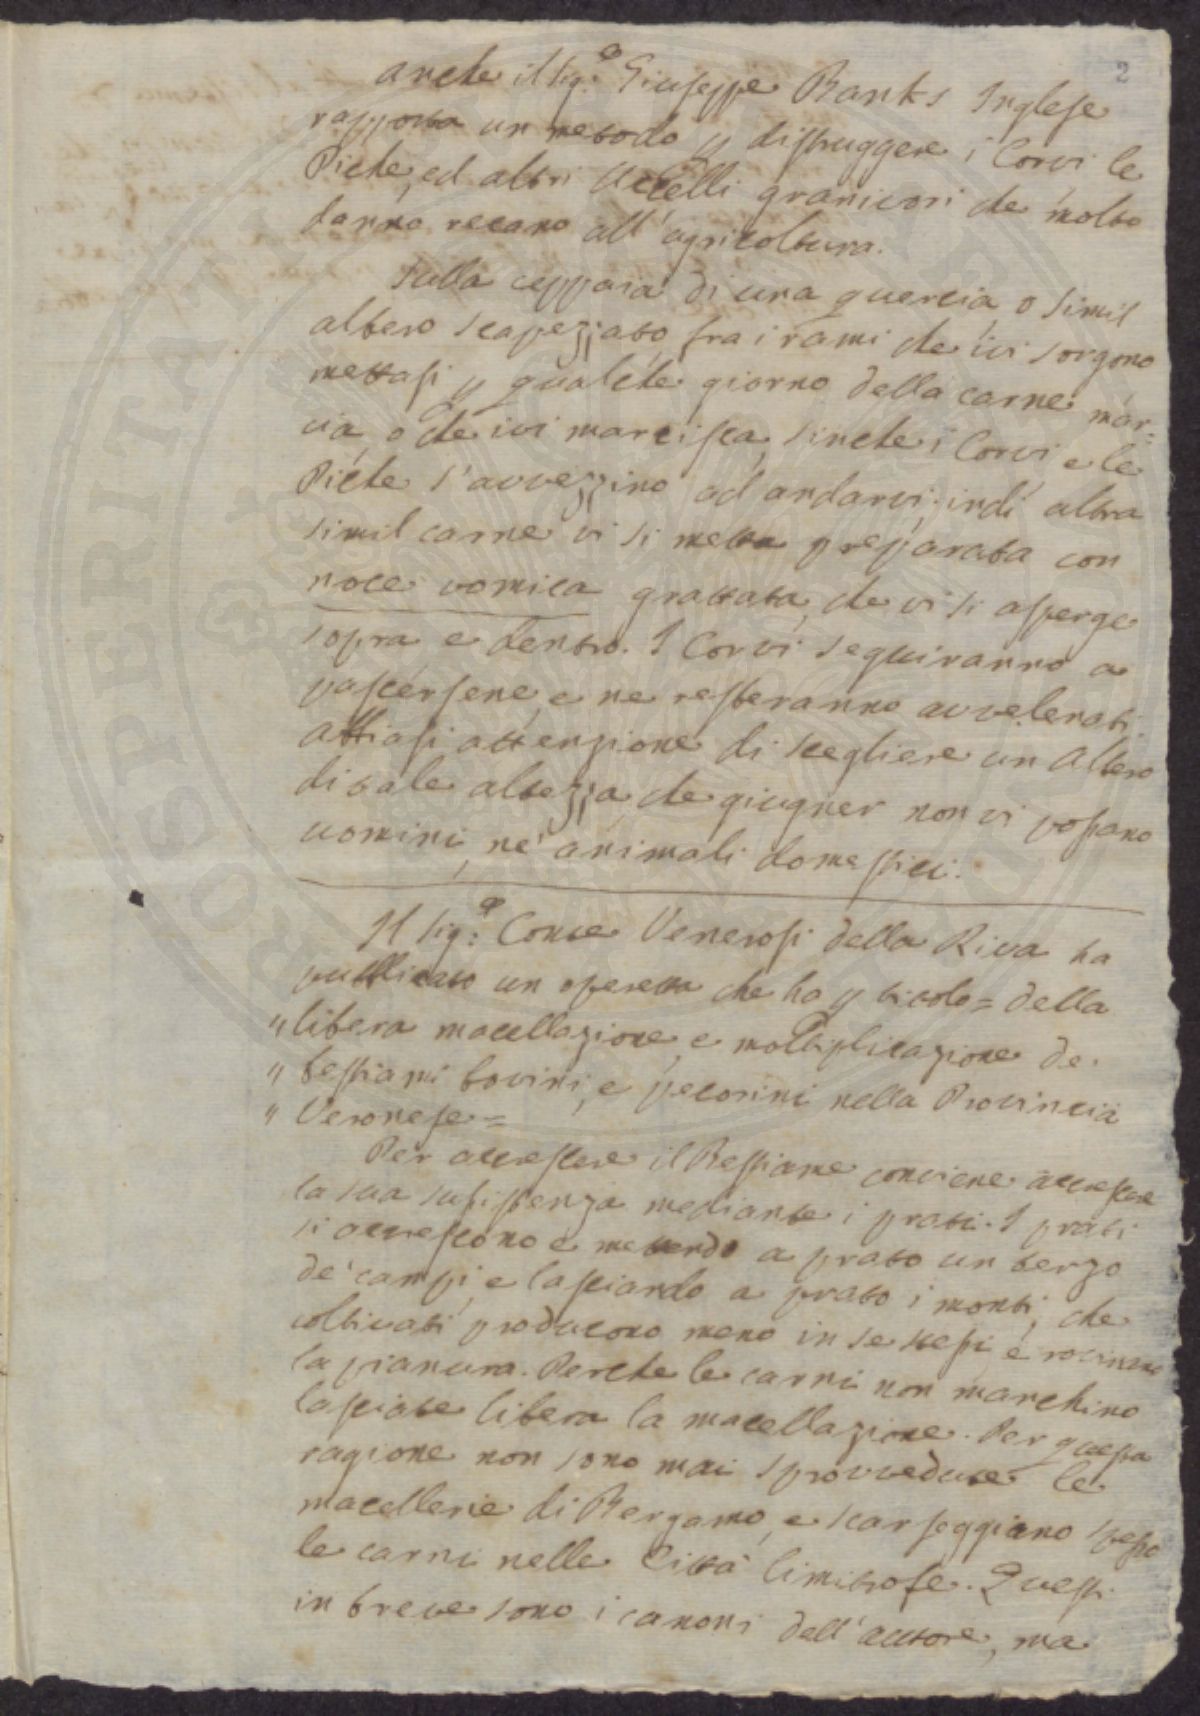 2
anche il Sig.r Giuseppe Banks Inglese
rapporta un metodo p distruggere i Corvi le
Piche, ed altri Uccelli granivori che molto
danno recano all'agricoltura.
Sulla ceppaia di una quercia, o simil
albero scapezzato, fra i rami che ivi sorgono
mettasi p qualche giorno della carne mar=
cia, o che ivi marcisca, sinche i Corvi e le
Piche s'avvezzino ad andarvi; indi altra
simil carne vi si metta preparata con
noce vomica grattata, che vi si asperge
sopra e dentro. I Corvi seguiranno a
pascersene, e ne resteranno avvelenati.
Abbiasi attenzione di scegliere un albero
di tale altezza, che giugner non vi possano
uomini, ne' animali domestici.
Il Sig.r Conte Venerosi della Riva ha
pubblicato un operetta che ha p titolo = della
" libera macellazione, e moltiplicazione de.
" bestiami bovini, e pecorini nella Provincia
" Veronese =
Per accrescere il Bestiame conviene accrescere
la sua sussistenza mediante i prati. I prati
si accrescono e mettendo a prato un terzo
de' campi, e lasciando a prato i monti, che
coltivati producono meno in se stessi, e rovinano
la pianura. Perche le carni non manchino
lasciate libera la macellazione. Per questa
ragione non sono mai sprovvedute le
macellerie di Bergamo, e scarseggiano spesso
le carni nelle Città limitrofe. Questi
in breve sono i canoni dell'autore, ma
PROSPERITATI